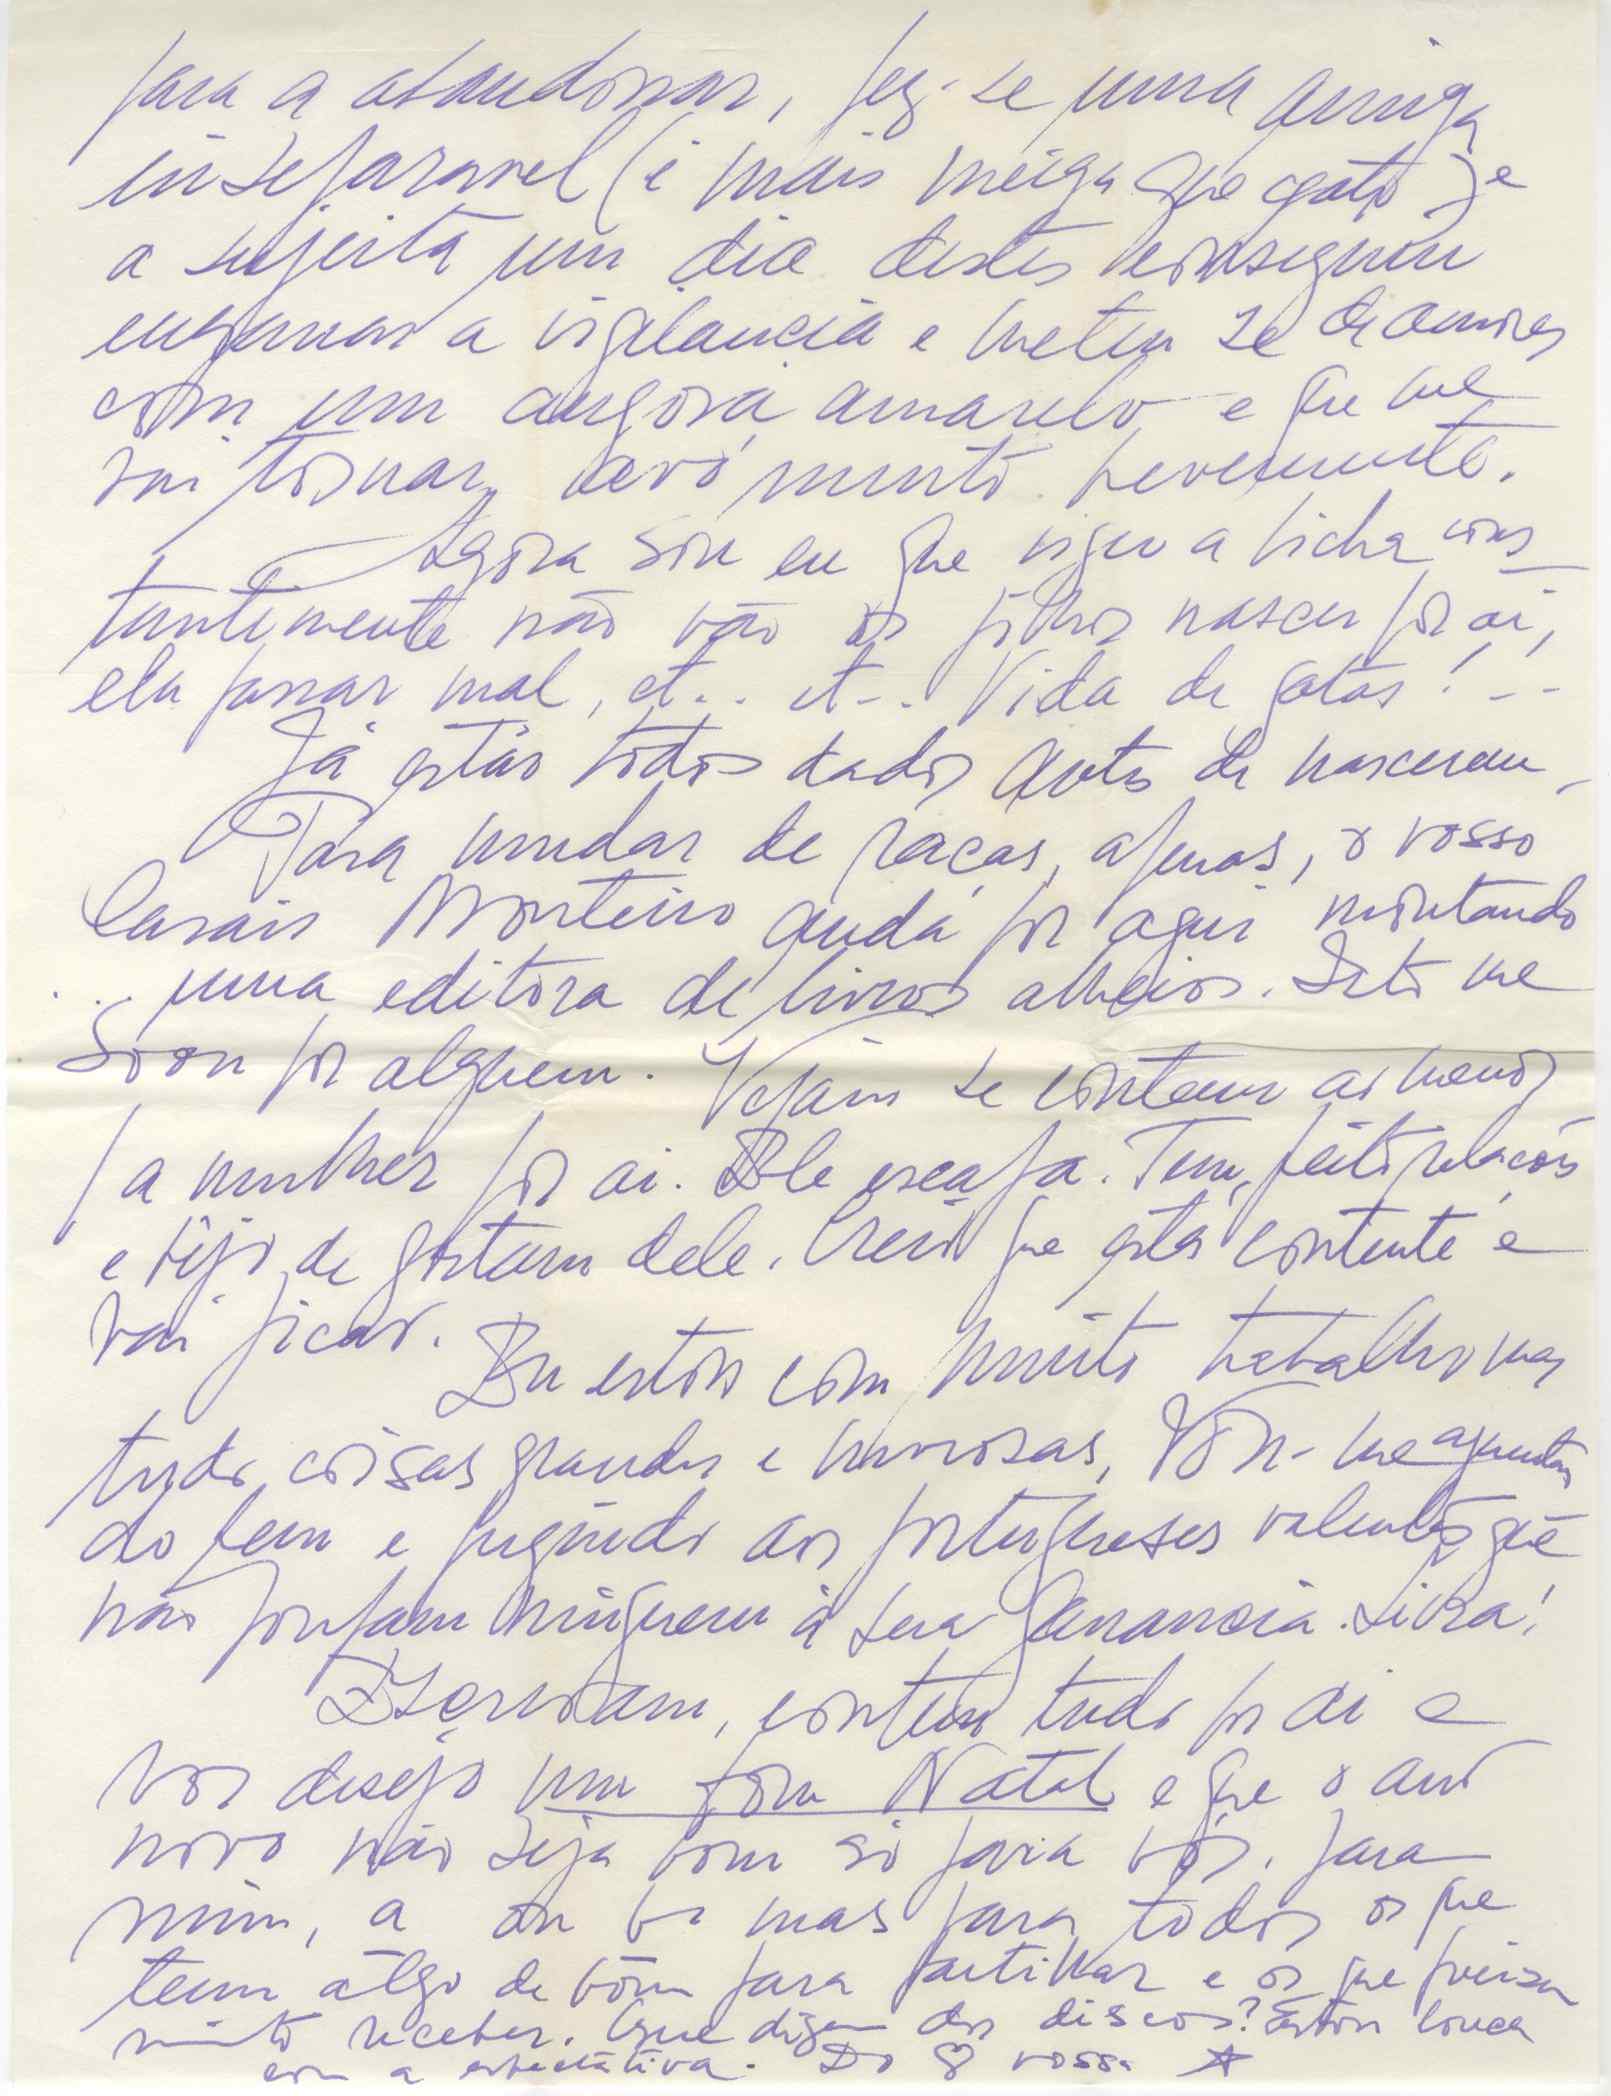 para a abandonar, fez-se uma amiga
inseparavel (é mais meiga que gato) e
a sujeita um dia destes conseguiu
enganar a vigilancia e meteu se de amores
com um angorá amarelo e que me
vai tornar avó muito brevemente.
Agora sou eu que vigio a bicha cons
tantemente não vão os filhos nascer por ai,
ela passar mal, et... et... Vida de gatas!...
Já estão todos dados antes de nascerem.
Para mudar de raças, apenas, o vosso
Casais Monteiro anda por aqui montando
... uma editora de livros alheios. Isto me
soou por alguem. Vejam se contam ao menos
a mulher por ai. Ele escapa. Tem feito relações
e vejo de gostam dele. Creio que está contente e
vai ficar.
Eu estou com muito trabalho mas
tudo coisas grandes e morosas, Vou-me aguentan
do bem e fugindo aos portugueses valentes que
não poupam ninguem à sua ganancia. Livra!
Escrevam, contem tudo por ai e
vos desejo um bom Natal e que o ano
novo não seja bom só para vós, para
mim, a ou b mas para todos os que
tem algo de bom para partilhar e os que precisam
muito receber. Que dizem dos discos? Estou louca
com a espectativa. Do ♡ vossa ☆